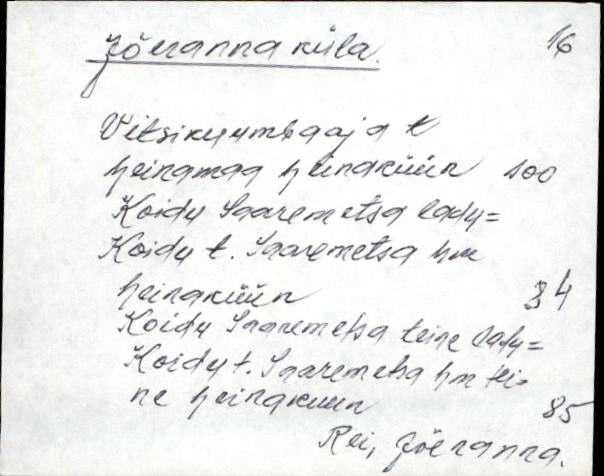 Jõeranna küla. 16
Vitsikuumbaaja t
heinamaa heinaküün 100
Koidu Saaremetsa ladu=
Koidu t. Saaremetsa hm
heinaküün 34
Koidu Saaremetsa teine ladu=
Koidu t. Saaremetsa hm tei-
ne heinakuun 85
Rei, Jõeranna.